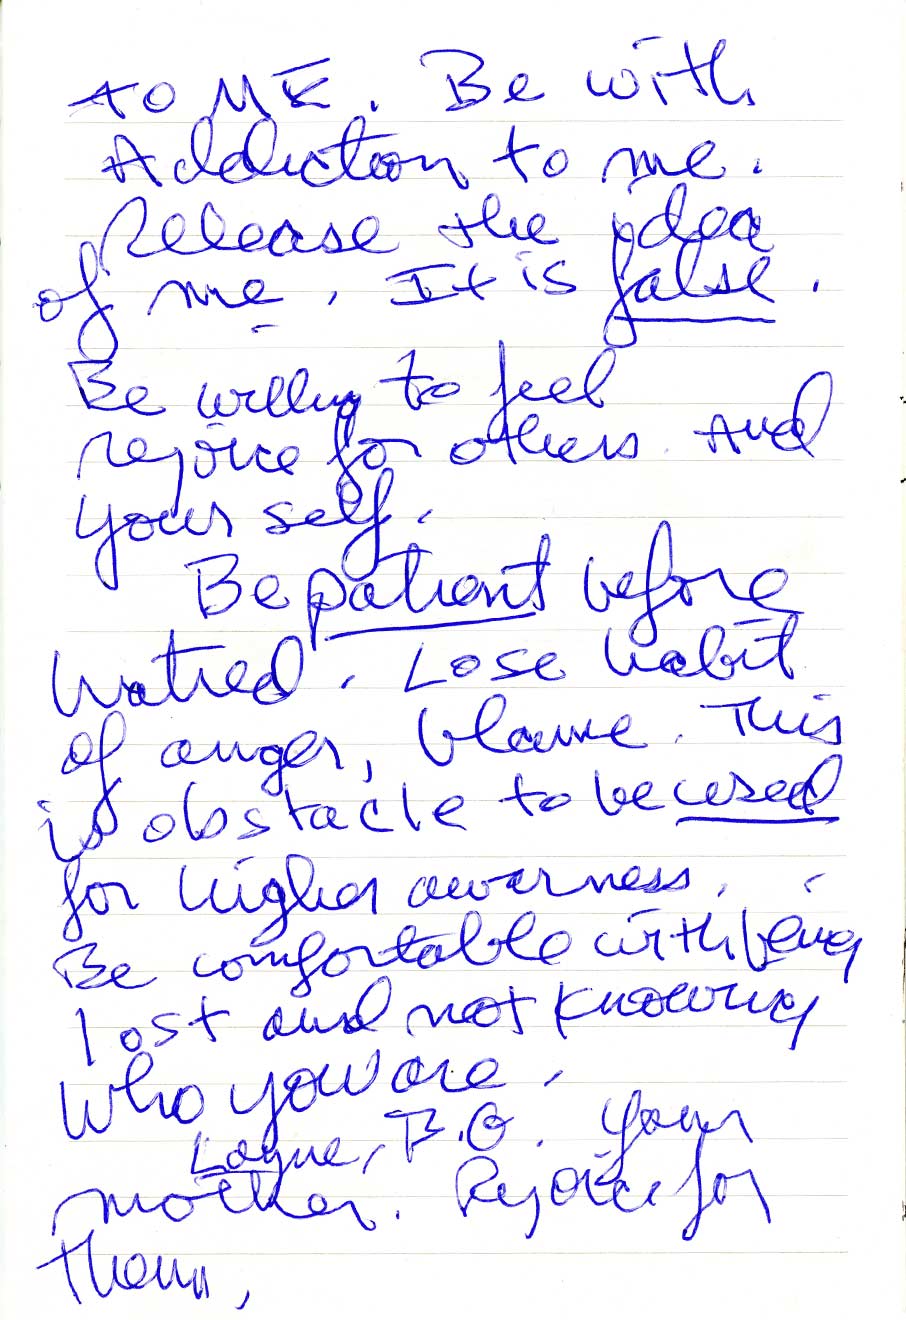 to ME. Be with
Addiction to me.
Release the idea
of me. It is false.
Be willing to feel
rejoice for others. And
yourself.
Be patient before
hatred. Lose habit
of anger, blame. This
is obstacle to be used
for higher awarness.
Be comfortable with being
lost and not knowing
who you are.
B.G. Your
mother. Rejoice for
them,